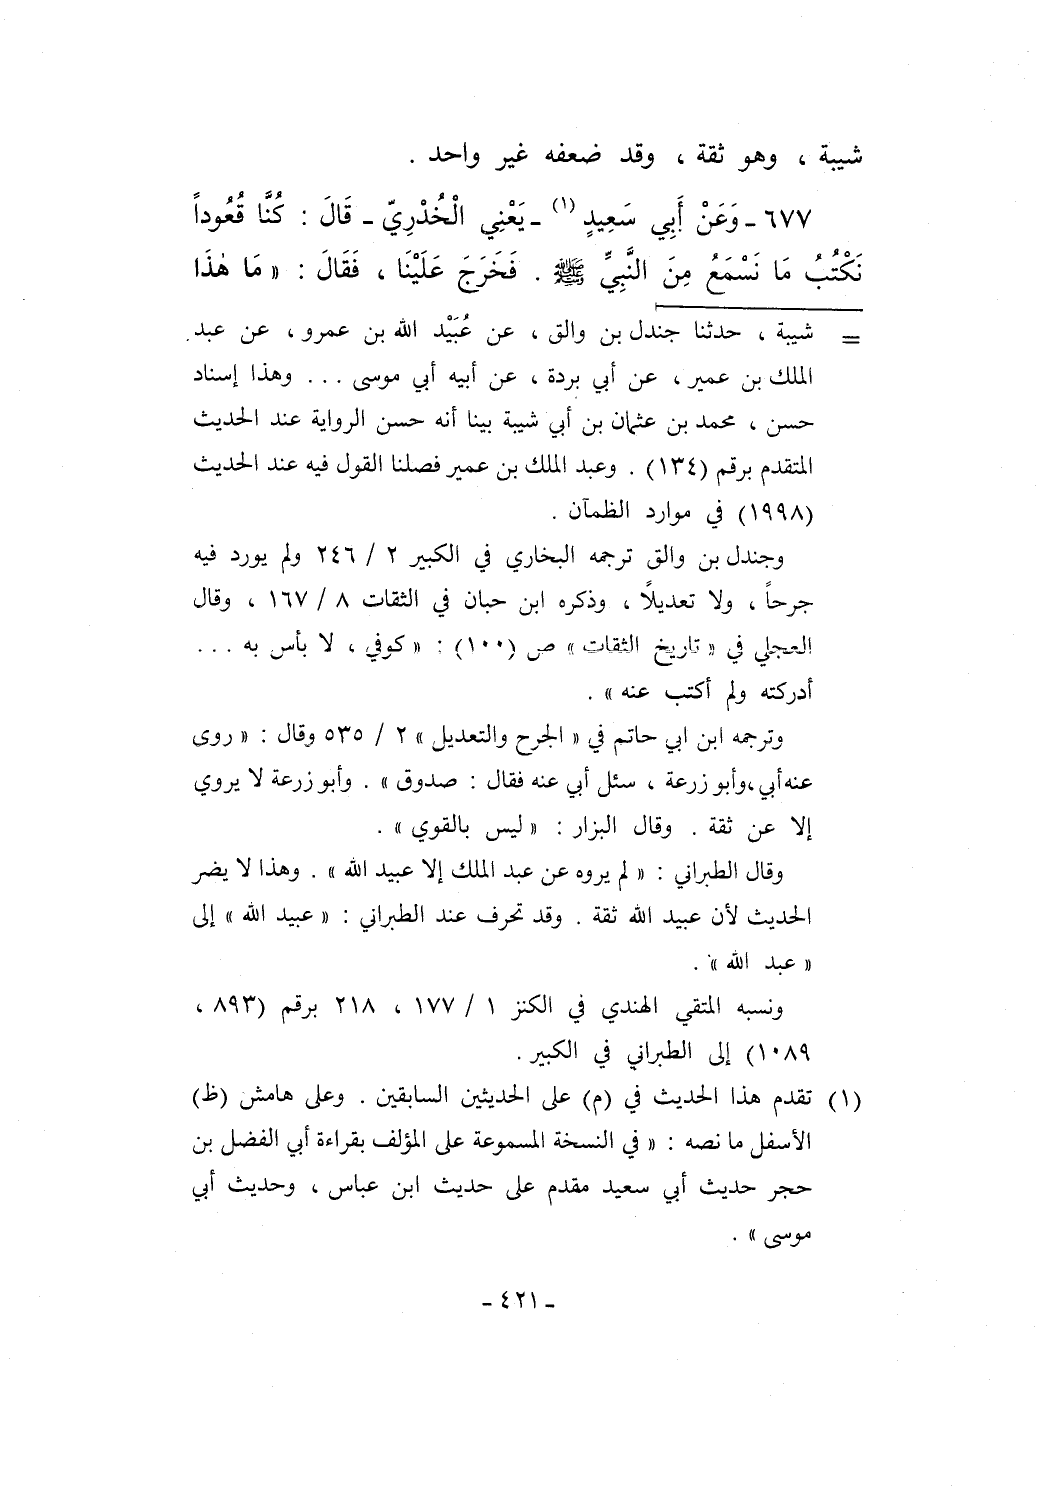 شيبة ، وهو ثقة ، وقد ضعفه غير واحد .
٦٧٧ ـ وَعَنْ أَبِي سَعِيدٍ (١) ـ يَعْنِي الْخُدْرِيّ ـ قَالَ : كُنَّا قُعُوداً
نَكْتُبُ مَا نَسْمَعُ مِنَ النَّبِيِّ ﷺ . فَخَرَجَ عَلَيْنَا ، فَقَالَ : « مَا هٰذَا
= شيبة ، حدثنا جندل بن والق ، عن عُبَيْد الله بن عمرو ، عن عبد
الملك بن عمير ، عن أبي بردة ، عن أبيه أبي موسى ... وهذا إسناد
حسن ، محمد بن عثمان بن أبي شيبة بينا أنه حسن الرواية عند الحديث
المتقدم برقم (١٣٤) . وعبد الملك بن عمير فصلنا القول فيه عند الحديث
(١٩٩٨) في موارد الظمآن .
وجندل بن والق ترجمه البخاري في الكبير ٢ / ٢٤٦ ولم يورد فيه
جرحاً ، ولا تعديلاً ، وذكره ابن حبان في الثقات ٨ / ١٦٧ ، وقال
العجلي في « تاريخ الثقات » ص (١٠٠) : « كوفي ، لا بأس به ...
أدركته ولم أكتب عنه » .
وترجمه ابن ابي حاتم في « الجرح والتعديل » ٢ / ٥٣٥ وقال : « روى
عنه أبي ، وأبو زرعة ، سئل أبي عنه فقال : صدوق » . وأبو زرعة لا يروي
إلا عن ثقة . وقال البزار : « ليس بالقوي » .
وقال الطبراني : « لم يروه عن عبد الملك إلا عبيد الله » . وهذا لا يضر
الحديث لأن عبيد الله ثقة . وقد تحرف عند الطبراني : « عبيد الله » إلى
« عبد الله » .
ونسبه المتقي الهندي في الكنز ١ / ١٧٧ ، ٢١٨ برقم (٨٩٣ ،
١٠٨٩) إلى الطبراني في الكبير .
(١) تقدم هذا الحديث في (م) على الحديثين السابقين . وعلى هامش (ظ)
الأسفل ما نصه : « في النسخة المسموعة على المؤلف بقراءة أبي الفضل بن
حجر حديث أبي سعيد مقدم على حديث ابن عباس ، وحديث أبي
موسى » .
ـ ٤٢١ ـ